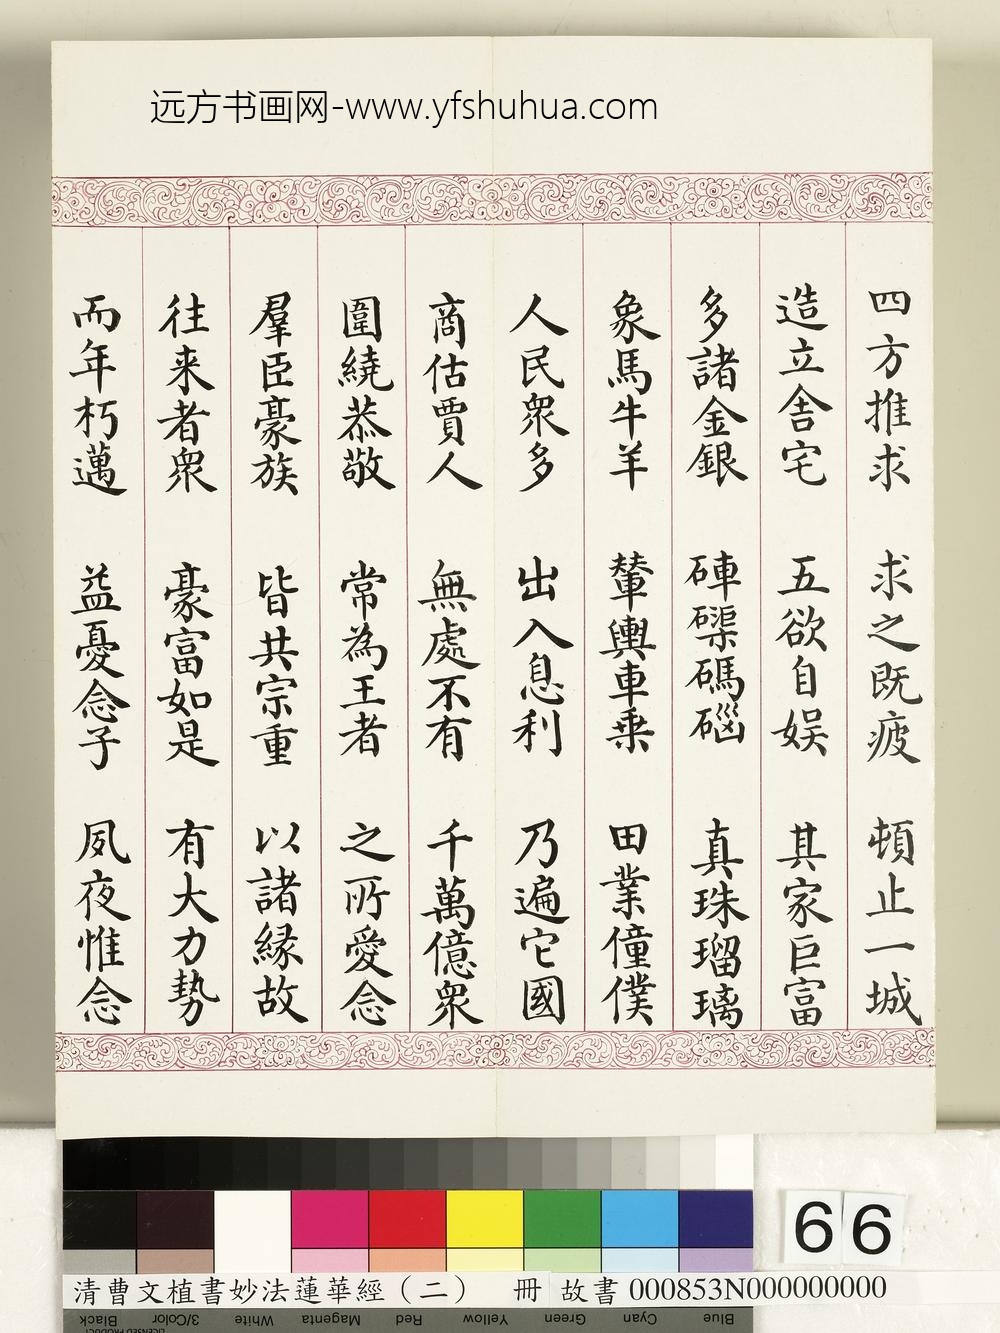 远方书画网-www.yfshuhua.com
四方推求 求之既疲 頓止一城
造立舎宅 五欲自娱 其家巨富
多諸金銀 硨磲碼碯 真珠瑠璃
象馬牛羊 輦輿車乗 田業僮僕
人民衆多 出入息利 乃遍它國
商估賈人 無處不有 千萬億衆
圍繞恭敬 常為王者 之所愛念
羣臣豪族 皆共宗重 以諸縁故
往来者衆 豪富如是 有大力勢
而年朽邁 益憂念子 夙夜惟念
66
清曹文植書妙法蓮華經（二） 冊 故書 000853N000000000
Black 3/Color White Magenta Red Yellow Green Cyan Blue